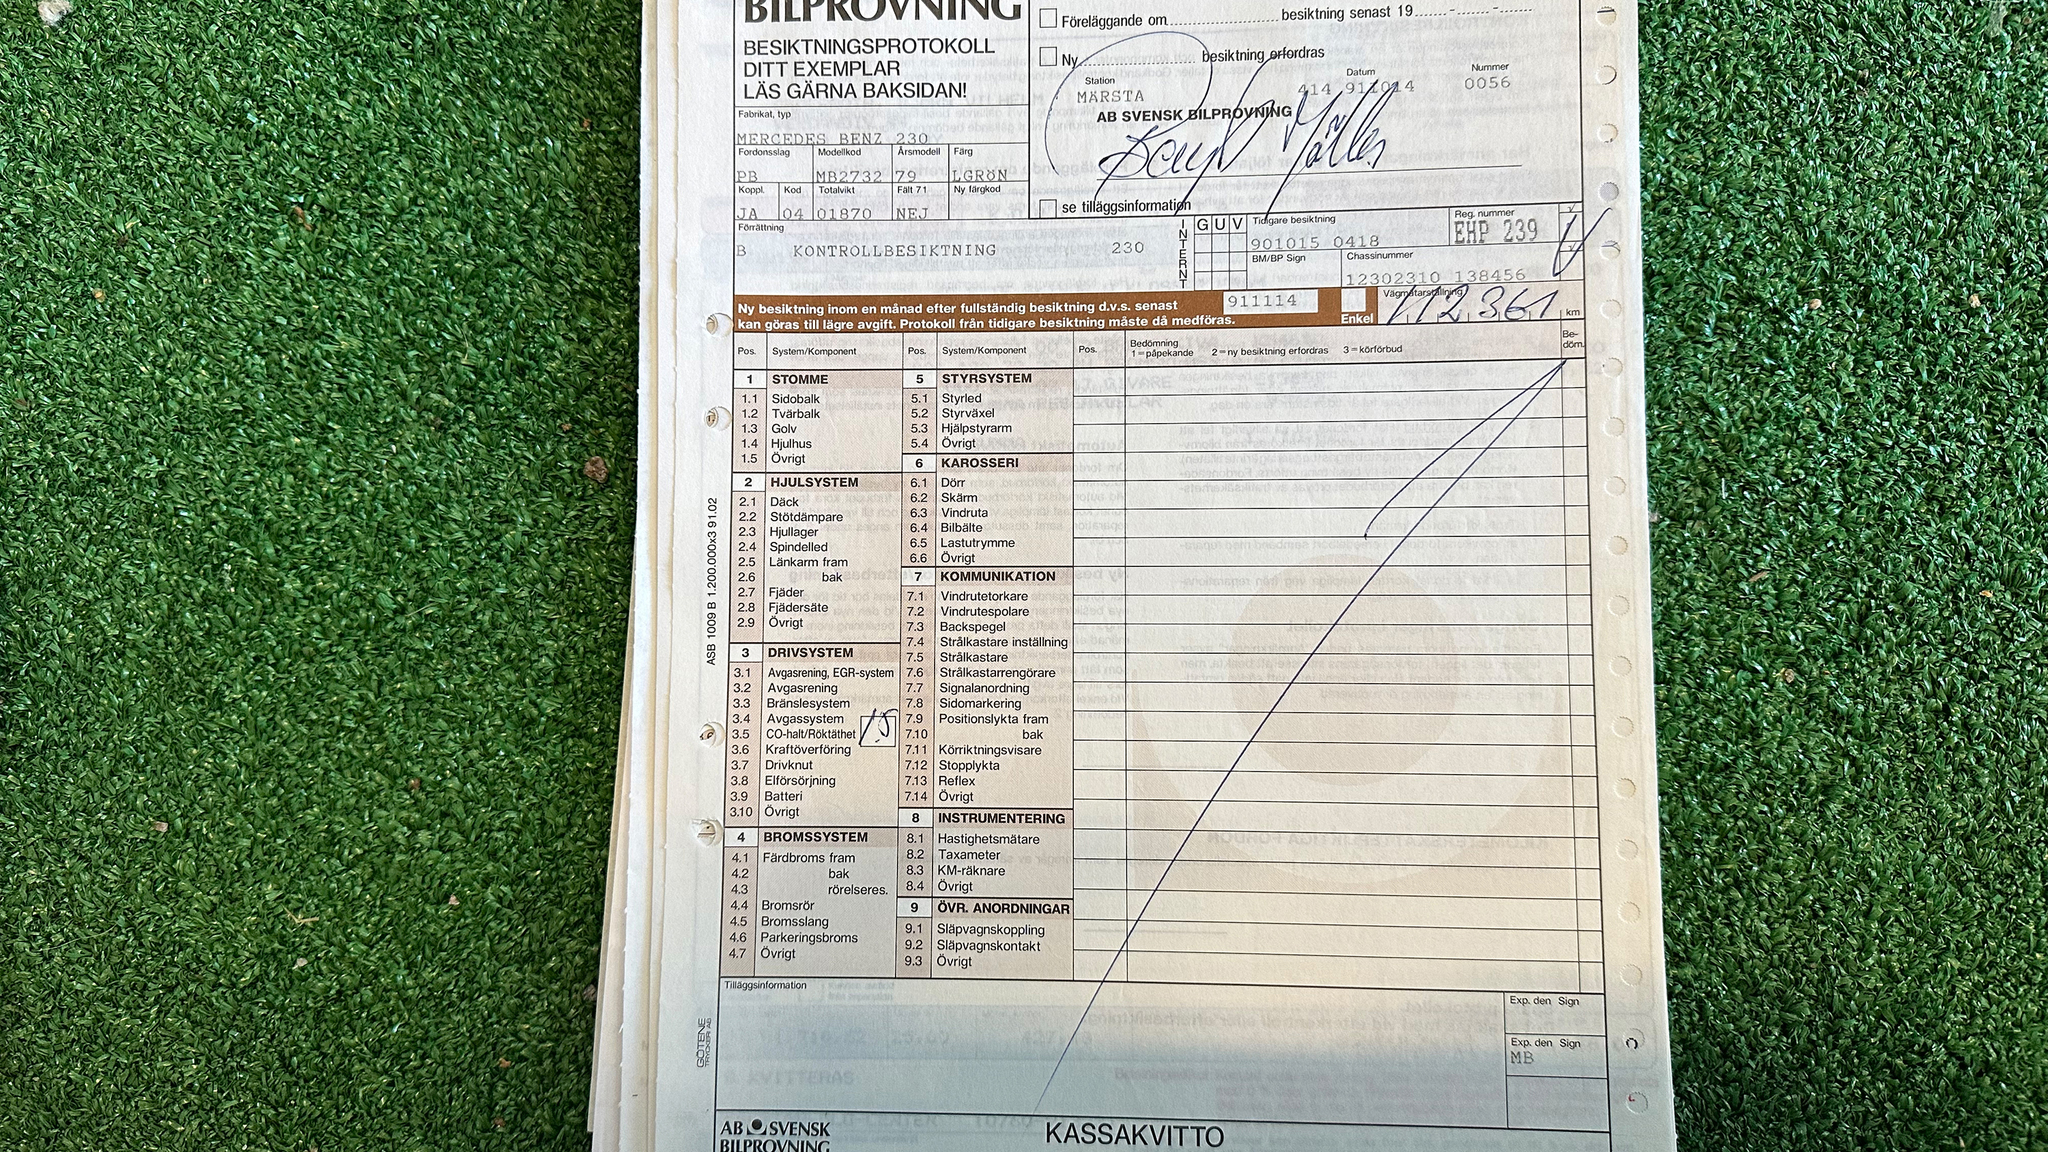 BILPROVNING
BESIKTNINGSPROTOKOLL
DITT EXEMPLAR
LÄS GÄRNA BAKSIDAN!
Föreläggande om besiktning senast 19
Ny besiktning erfordras
Station Datum Nummer
MÄRSTA 414 911014 0056
AB SVENSK BILPROVNING
se tilläggsinformation
Fabrikat, typ
MERCEDES BENZ 230
Fordonsslag Modellkod Årsmodell Färg
PB MB2732 79 LGRÖN
Koppl. Kod Totalvikt Fält 71 Ny färgkod
JA 04 01870 NEJ
Förrättning
B KONTROLLBESIKTNING 230
INTERNT
G U V
Tidigare besiktning
901015 0418
Reg. nummer
EHP 239
BM/BP Sign
Chassinummer
12302310 138456
Ny besiktning inom en månad efter fullständig besiktning d.v.s. senast 911114
kan göras till lägre avgift. Protokoll från tidigare besiktning måste då medföras.
Enkel
Vägmätarställning
112361 km
Pos. System/Komponent Pos. System/Komponent Pos. Bedömning
1 = påpekande 2 = ny besiktning erfordras 3 = körförbud
Be-
döm.
1 STOMME
1.1 Sidobalk
1.2 Tvärbalk
1.3 Golv
1.4 Hjulhus
1.5 Övrigt
2 HJULSYSTEM
2.1 Däck
2.2 Stötdämpare
2.3 Hjullager
2.4 Spindelled
2.5 Länkarm fram
2.6 bak
2.7 Fjäder
2.8 Fjädersäte
2.9 Övrigt
3 DRIVSYSTEM
3.1 Avgasrening, EGR-system
3.2 Avgasrening
3.3 Bränslesystem
3.4 Avgassystem
3.5 CO-halt/Röktäthet 1.5
3.6 Kraftöverföring
3.7 Drivknut
3.8 Elförsörjning
3.9 Batteri
3.10 Övrigt
4 BROMSSYSTEM
4.1 Färdbroms fram
4.2 bak
4.3 rörelseres.
4.4 Bromsrör
4.5 Bromsslang
4.6 Parkeringsbroms
4.7 Övrigt
5 STYRSYSTEM
5.1 Styrled
5.2 Styrväxel
5.3 Hjälpstyrarm
5.4 Övrigt
6 KAROSSERI
6.1 Dörr
6.2 Skärm
6.3 Vindruta
6.4 Bilbälte
6.5 Lastutrymme
6.6 Övrigt
7 KOMMUNIKATION
7.1 Vindrutetorkare
7.2 Vindrutespolare
7.3 Backspegel
7.4 Strålkastare inställning
7.5 Strålkastare
7.6 Strålkastarrengörare
7.7 Signalanordning
7.8 Sidomarkering
7.9 Positionslykta fram
7.10 bak
7.11 Körriktningsvisare
7.12 Stopplykta
7.13 Reflex
7.14 Övrigt
8 INSTRUMENTERING
8.1 Hastighetsmätare
8.2 Taxameter
8.3 KM-räknare
8.4 Övrigt
9 ÖVR. ANORDNINGAR
9.1 Släpvagnskoppling
9.2 Släpvagnskontakt
9.3 Övrigt
ASB 1009 B 1.200.000x3 91.02
Tilläggsinformation
Exp. den Sign
Exp. den Sign
MB
GÖTENE
TRYCKERI AB
AB SVENSK
BILPROVNING
KASSAKVITTO